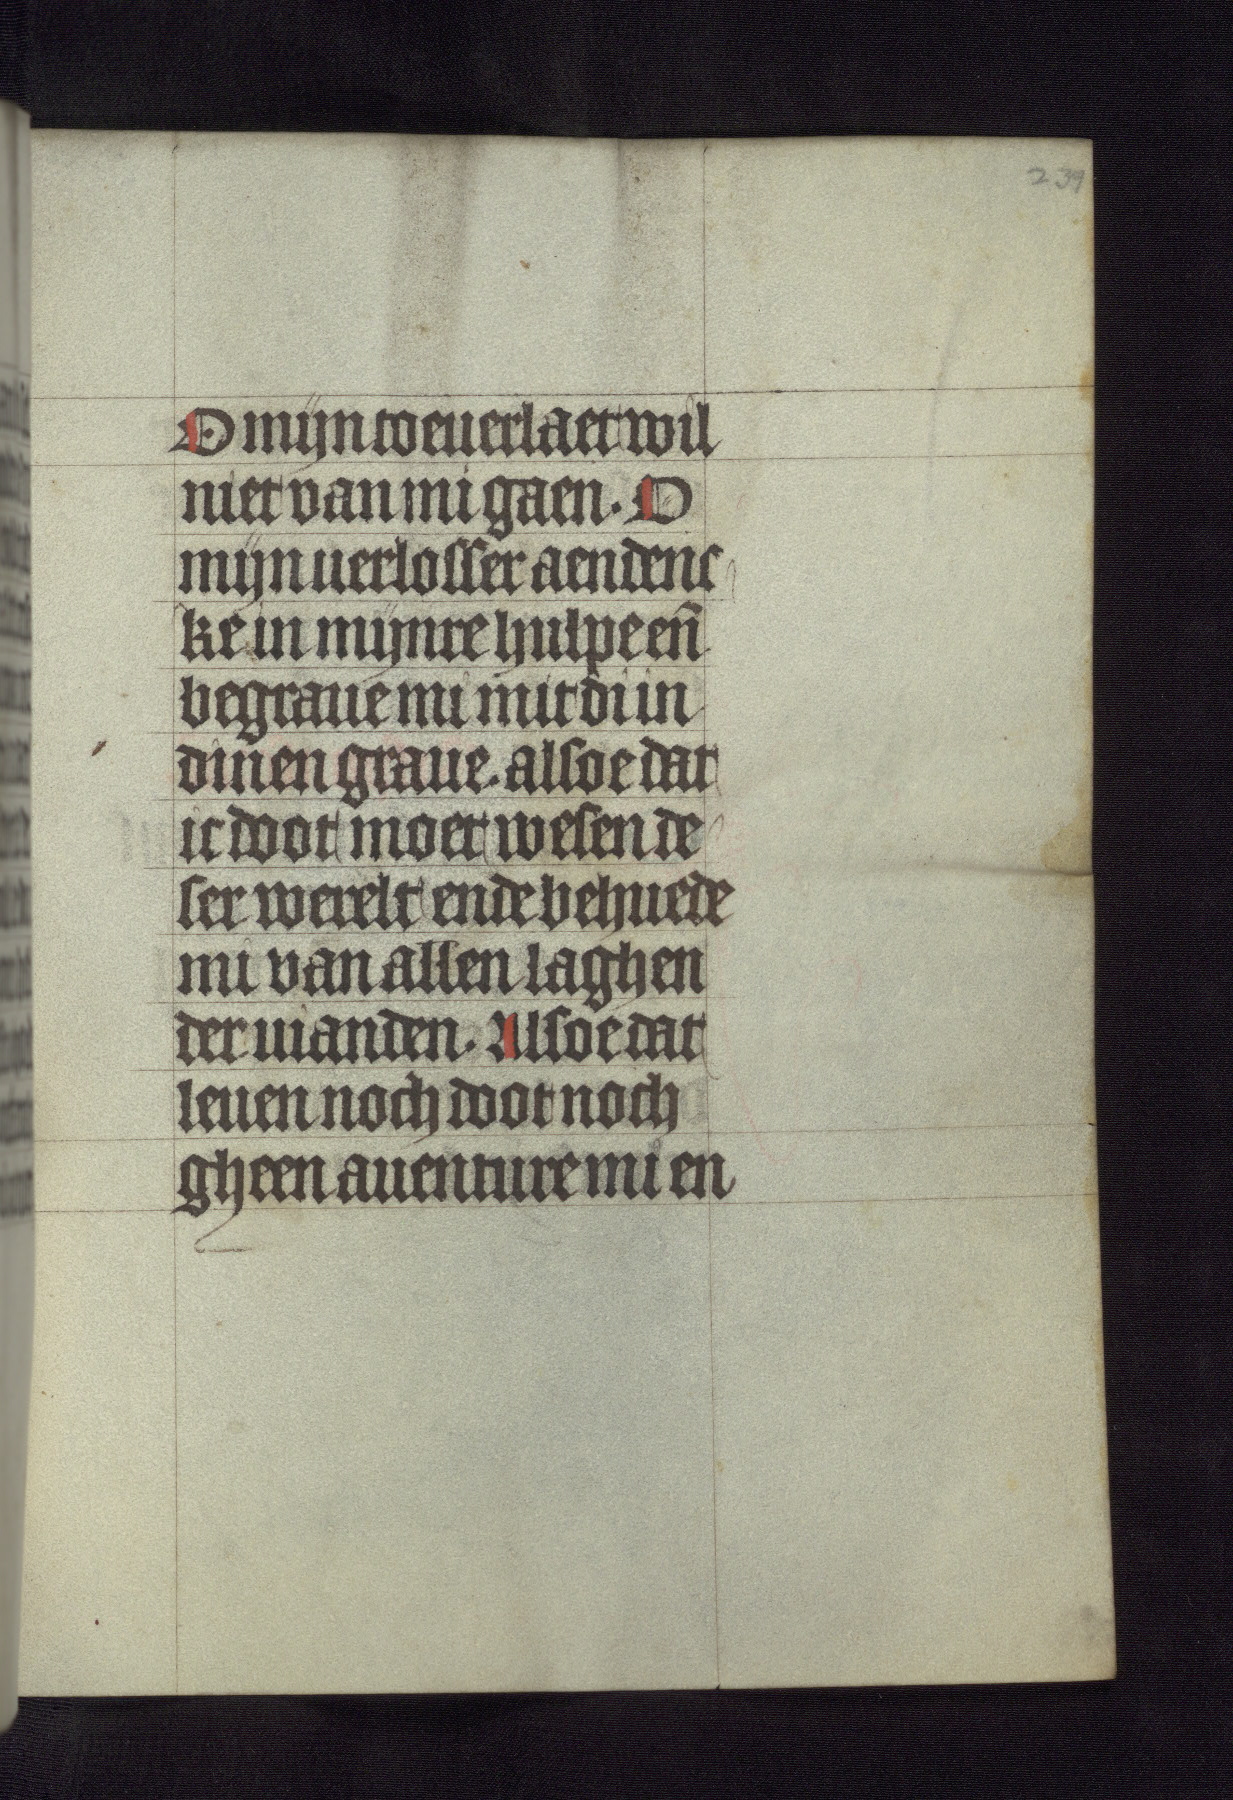 239
O mijn toeuerlaet wil
niet van mi gaen. O
mijn uerlosser aendenc
ke in mijnre hulpe en̄
begraue mi mit di in
dinen graue. alsoe dat
ic doot moet wesen de
ser werelt ende behuede
mi van allen laghen
der uianden. Alsoe dat
leuen noch doot noch
gheen auenture mi en